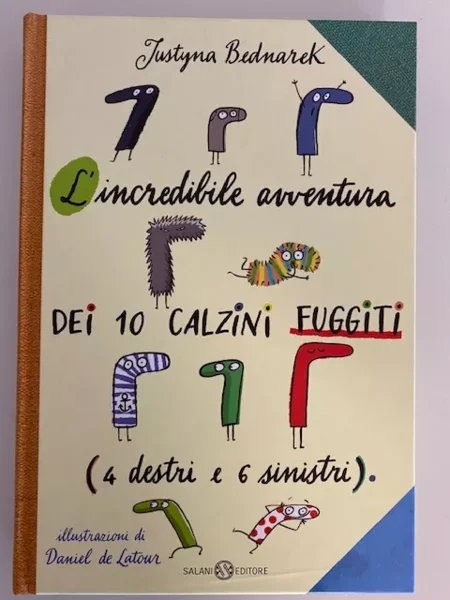 Justyna Bednarek
L'incredibile avventura
DEI 10 CALZINI FUGGITI
(4 destri e 6 sinistri).
illustrazioni di
Daniel de Latour
SALANI EDITORE